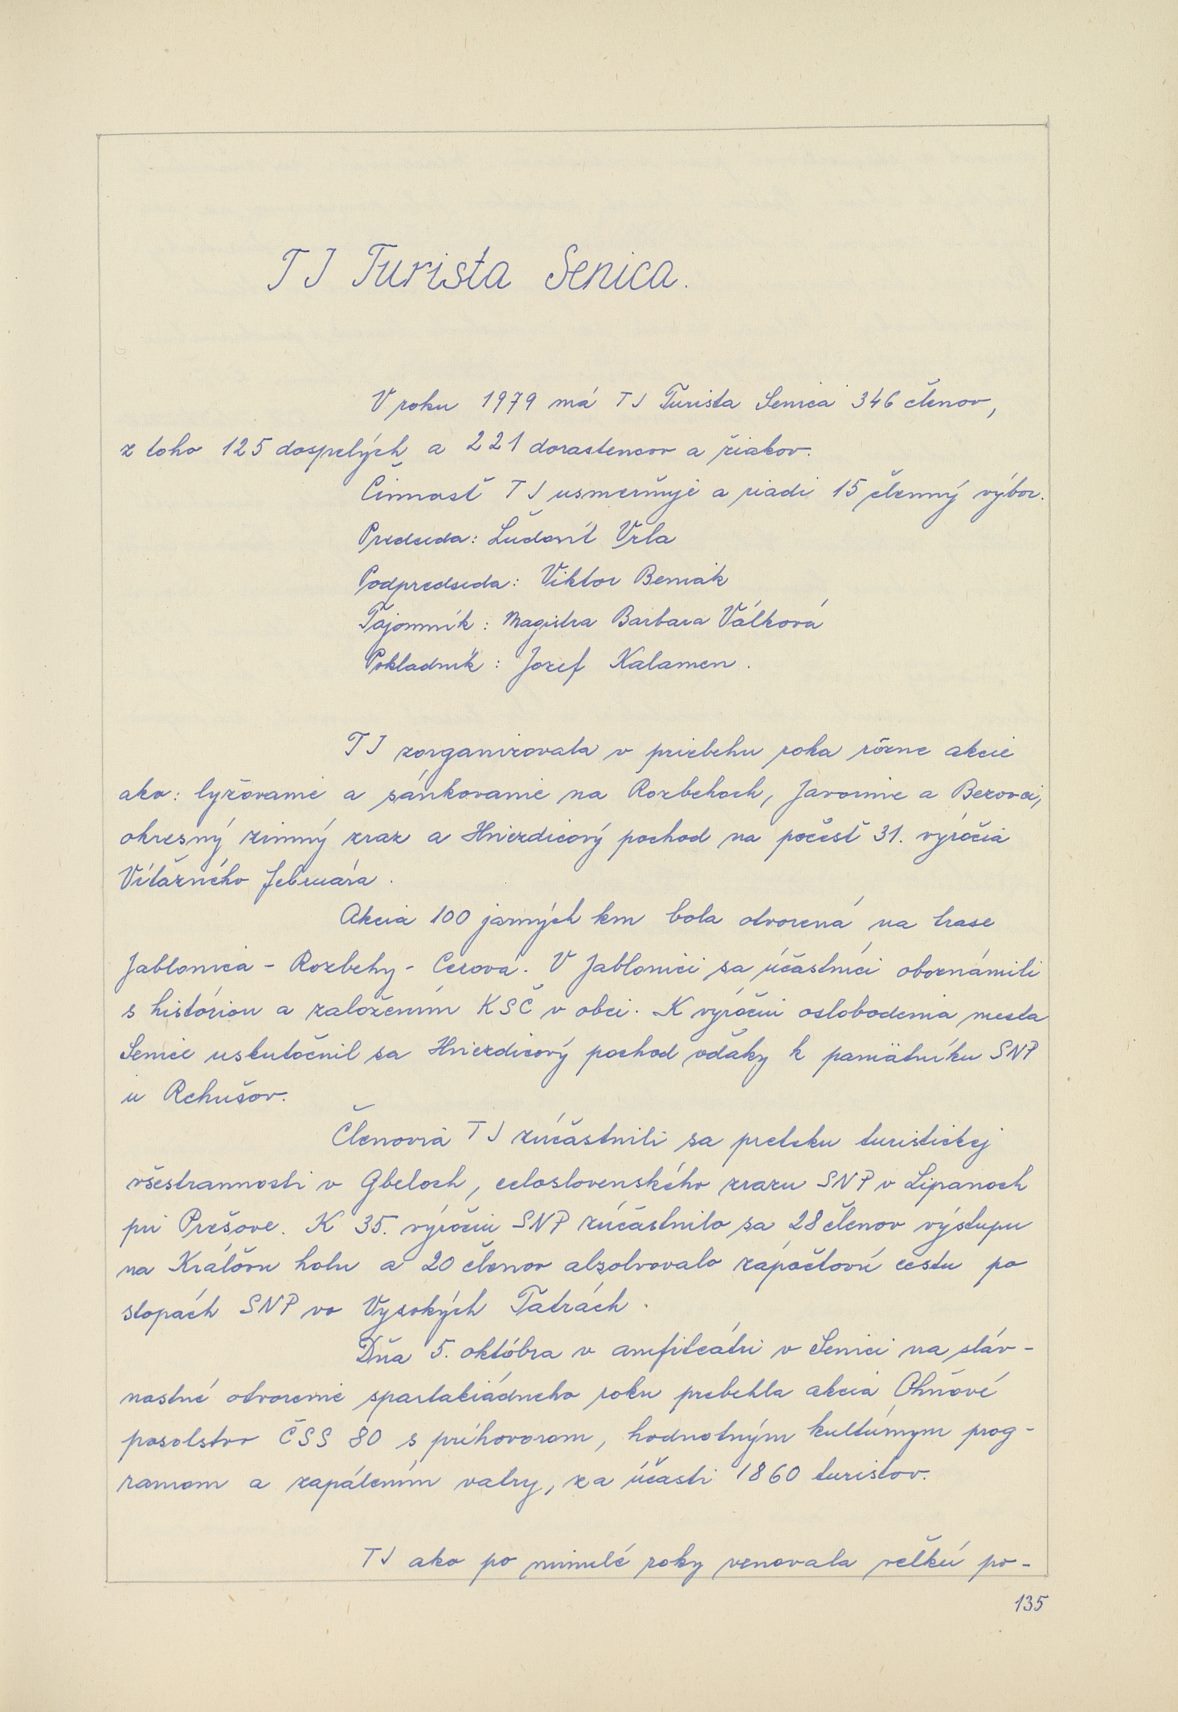 TJ Turista Senica.
V roku 1979 má TJ Turista Senica 346 členov,
z toho 125 dospelých a 221 dorastencov a žiakov.
Činnosť TJ usmerňuje a riadi 15 členný výbor.
Predseda: Ľudovít Vrla
Podpredseda: Viktor Beniak
Tajomník: Magistra Barbara Válková
Pokladník: Jozef Kalamen.
TJ zorganizovala v priebehu roka rôzne akcie
ako: lyžovanie a sánkovanie na Rozbehoch, Javorine a Bezovci,
okresný zimný zraz a Hviezdicový pochod na počesť 31. výročia
Víťazného februára.
Akcia 100 jarných km bola otvorená na trase
Jablonica - Rozbehy - Cerová. V Jablonici sa účastníci oboznámili
s históriou a založením KSČ v obci. K výročiu oslobodenia mesta
Senice uskutočnil sa Hviezdicový pochod vďaky k pamätníku SNP
u Rehušov.
Členovia TJ zúčastnili sa preteku turistickej
všestrannosti v Gbeloch, celoslovenského zrazu SNP v Lipanoch
pri Prešove. K 35. výročiu SNP zúčastnilo sa 28 členov výstupu
na Kráľovu hoľu a 20 členov absolvovalo zápočtovú cestu po
stopách SNP vo Vysokých Tatrách.
Dňa 5. októbra v amfiteátri v Senici na sláv-
nostné otvorenie spartakiádneho roku prebehla akcia Ohňové
posolstvo ČSS 80 s príhovorom, hodnotným kultúrnym prog-
ramom a zapálením vatry, za účasti 1860 turistov.
TJ ako po minulé roky venovala veľkú po-
135